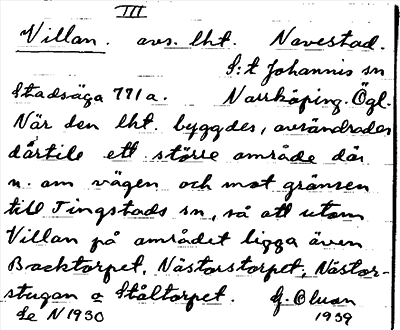 III
Villan. avs. lht. Navestad.
S:t Johannis sn
Stadsäga 771a. Norrköping. Ögl.
När den lht. byggdes, användrades
därtill ett större område där
n. om vägen och mot gränsen
till Tingstads sn, så att utom
Villan på området ligga även
Backtorpet, Nästorstorpet, Nästor-
stugan o Ståltorpet. G. Olson
Se N 1930 1939